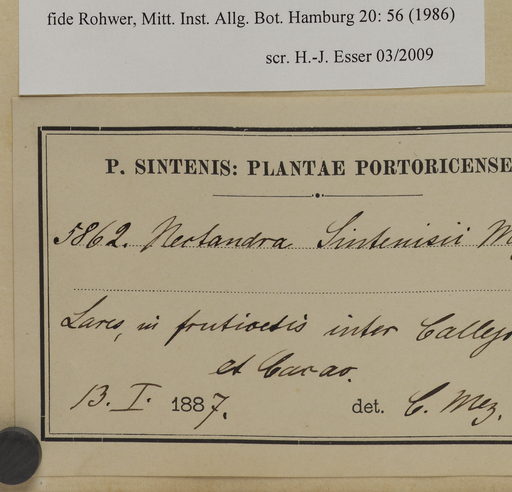 fide Rohwer, Mitt. Inst. Allg. Bot. Hamburg 20: 56 (1986)
scr. H.-J. Esser 03/2009
P. SINTENIS: PLANTAE PORTORICENSE
5862. Nectandra Sintenisii M
Lares, in fruticetis inter Callejo
et Cacao.
13. I. 1887.
det. C. Mez.